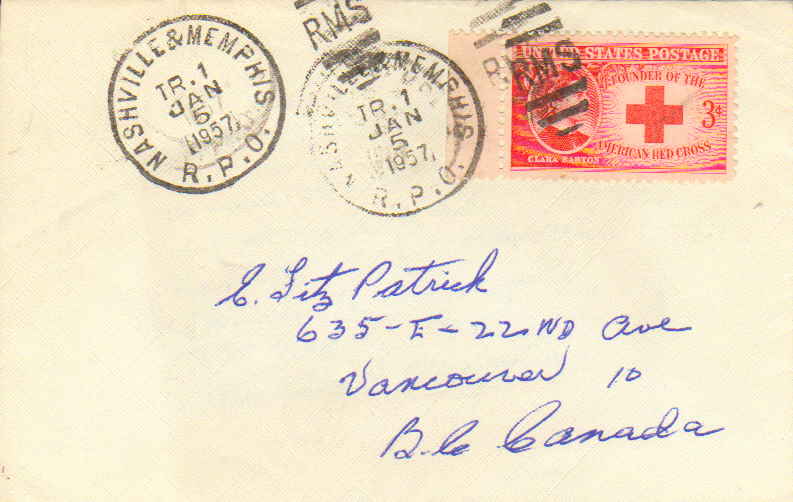 NASHVILLE & MEMPHIS
TR. 1
JAN
5
1957
R.P.O.
NASHVILLE & MEMPHIS
TR. 1
JAN
5
1957
R.P.O.
RMS
RMS
UNITED STATES POSTAGE
FOUNDER OF THE
3¢
AMERICAN RED CROSS
CLARA BARTON
E. Fitz Patrick
635-E-22ND Ave
Vancouver 10
B.C. Canada